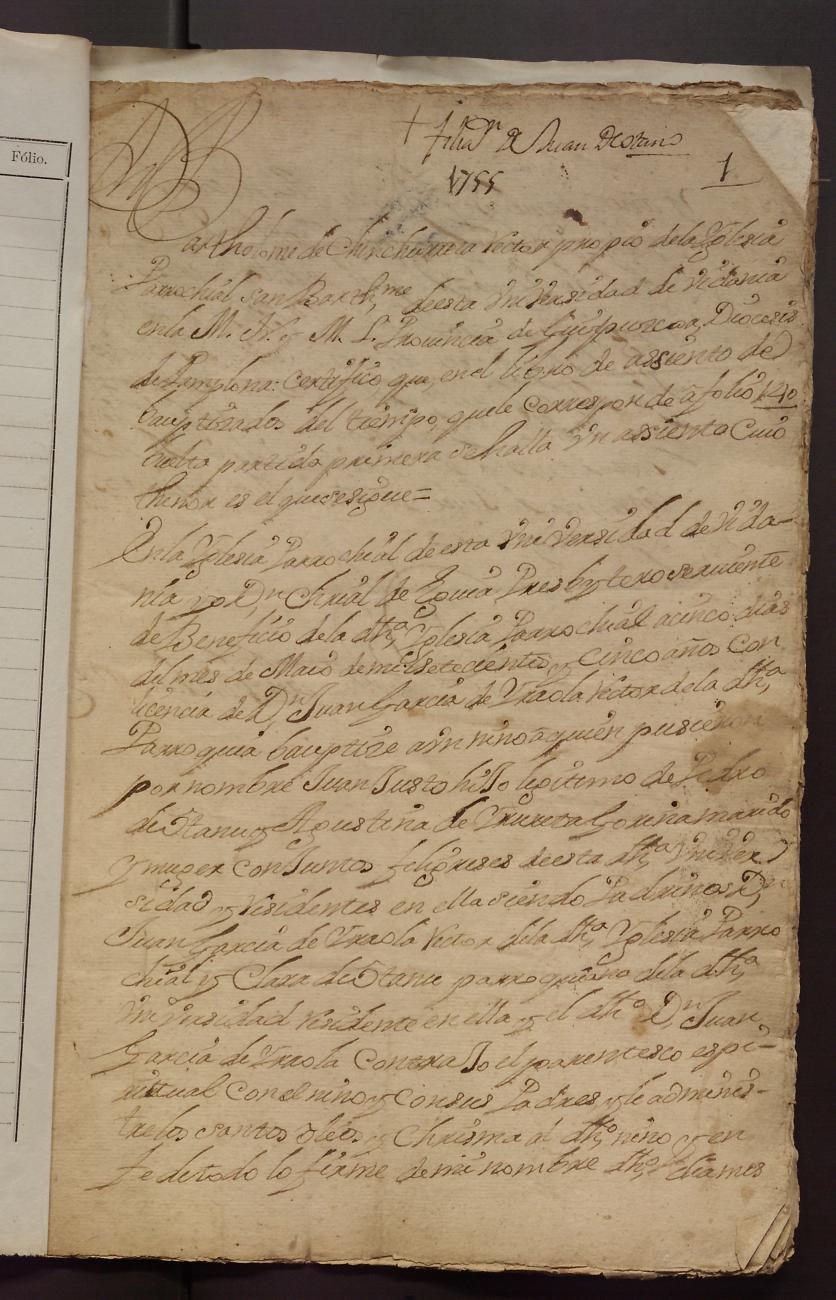 Fólio.
+
filiaon. de Juan De Otano
1755
1
Bartholome de Chinchurreta Rector propio de la Yglesia
Parrochial san Barthme, de esta Vniversidad de Vidania
en la M. N. y M. L. Provincia de Guipuzcoa, Diocesis
de Pamplona: certifico, que, en el libro de assiento de
bauptizados del tiempo, que le corresponde a folio 140
buelta partida primera se halla un assiento Cuio
thenor es el que se sigue=
En la Yglesia Parrochial de esta Vniversidad de Vida-
nia yo Dn. Chrial de Eguia Presbytero serviente
de Beneficio de la dha, Yglesia Parrochial a cinco dias
del mes de Maio de mil setecientos, y cinco años con
licencia de Dn. Juan Garcia de Vraola Rector de la dha,
Parroquia bauptize a un niño a quien pusieron
por nombre Juan Justo hiJo legitimo de Pedro
de Otanu, y Agustina de Vrureta Goriena marido
y muger conJuntos feligreses de esta dha, Vniver
sidad, y Residentes en ella siendo Padrinos Dn,
Juan Garcia de Vraola Rector dela dha, Yglesia Parro
chial y Clara de Otanu parroquiano dela dha,
Vniversidad residente en ella, y el dho, Dn, Juan
Garcia de Vraola ContraJo el parentesco espi-
ritual con el niño, y con sus Padres, y le adminis-
tre los santos oleos, y Chrisma al dho, niño, y en
fe de todo lo firme de mi nombre dho, dia mes